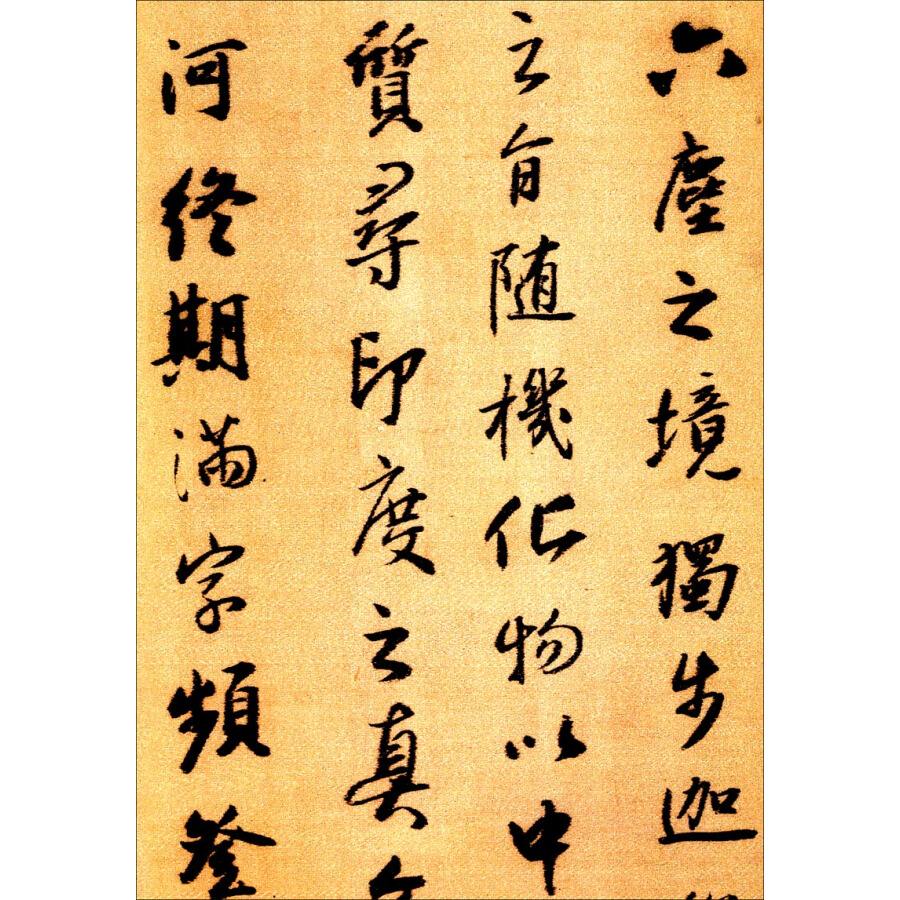 六塵之境獨步迦
之旨随機化物以中
質尋印度之真
河終期滿字頻登